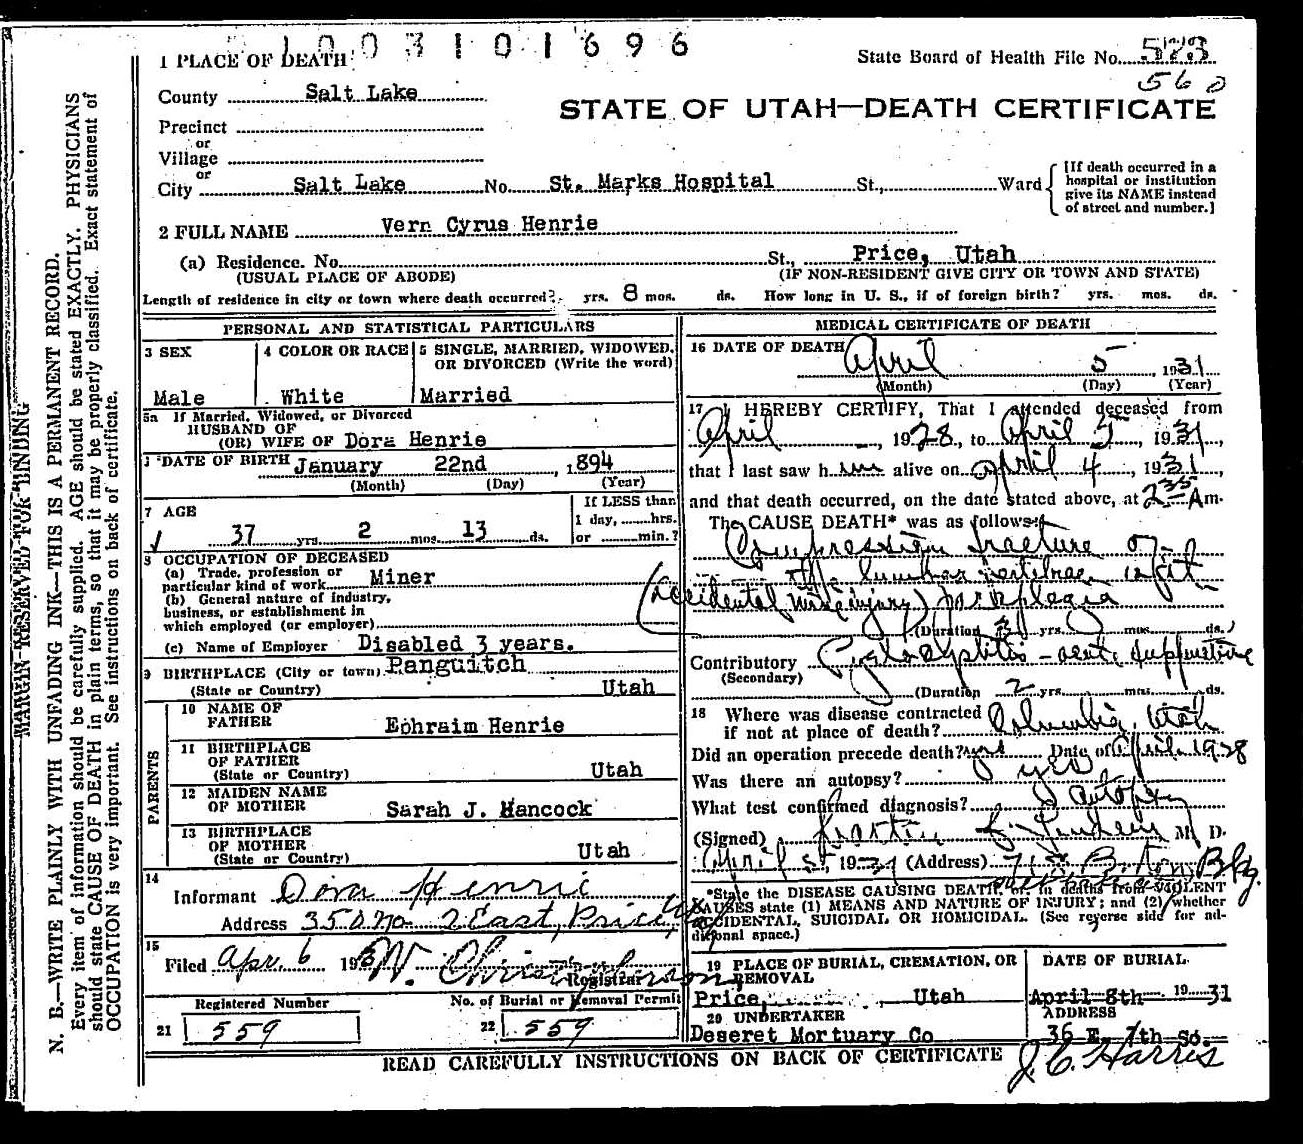 1003101696
1 PLACE OF DEATH
State Board of Health File No. 573
560
County Salt Lake
STATE OF UTAH—DEATH CERTIFICATE
Precinct
or
Village
or
City Salt Lake No. St. Marks Hospital St., Ward
[If death occurred in a
hospital or institution
give its NAME instead
of street and number.]
2 FULL NAME Vern Cyrus Henrie
(a) Residence. No. St., Price, Utah
(USUAL PLACE OF ABODE) (IF NON-RESIDENT GIVE CITY OR TOWN AND STATE)
Length of residence in city or town where death occurred? yrs. 8 mos. ds. How long in U. S., if of foreign birth? yrs. mos. ds.
PERSONAL AND STATISTICAL PARTICULARS
3 SEX
Male
4 COLOR OR RACE
White
5 SINGLE, MARRIED, WIDOWED,
OR DIVORCED (Write the word)
Married
5a If Married, Widowed, or Divorced
HUSBAND OF
(OR) WIFE OF Dora Henrie
DATE OF BIRTH January 22nd, 1894
(Month) (Day) (Year)
7 AGE
37 yrs. 2 mos. 13 ds.
If LESS than
1 day, hrs.
or min.?
8 OCCUPATION OF DECEASED
(a) Trade, profession or
particular kind of work Miner
(b) General nature of industry,
business, or establishment in
which employed (or employer)
(c) Name of Employer Disabled 3 years.
9 BIRTHPLACE (City or town) Panguitch
(State or Country) Utah
PARENTS
10 NAME OF
FATHER Ephraim Henrie
11 BIRTHPLACE
OF FATHER
(State or Country) Utah
12 MAIDEN NAME
OF MOTHER Sarah J. Hancock
13 BIRTHPLACE
OF MOTHER
(State or Country) Utah
14
Informant Dora Henrie
Address 350 No 2 East, Price Ut
15
Filed Apr. 6 193 W. Christopherson,
Registrar
Registered Number
21 559
No. of Burial or Removal Permit
22 559
MEDICAL CERTIFICATE OF DEATH
16 DATE OF DEATH April 5, 1931
(Month) (Day) (Year)
17 I HEREBY CERTIFY, That I attended deceased from
April, 1928, to April 5, 1931,
that I last saw him alive on April 4, 1931,
and that death occurred, on the date stated above, at 2 35 A m.
The CAUSE DEATH* was as follows:
Compression fracture of
lumbar vertebrae with
(accidental mine injury) paraplegia
(Duration 3 yrs. mos. ds.)
Contributory acute suppurative
(Secondary)
(Duration 2 yrs. mos. ds.
18 Where was disease contracted
if not at place of death? Columbia, Utah
Did an operation precede death? yes Date of April 1928
Was there an autopsy? yes
What test confirmed diagnosis? Autopsy
(Signed) M. D.
April 5, 1931 (Address) Bldg.
*State the DISEASE CAUSING DEATH, or, in deaths from VIOLENT
CAUSES state (1) MEANS AND NATURE OF INJURY; and (2) whether
ACCIDENTAL, SUICIDAL OR HOMICIDAL. (See reverse side for ad-
ditional space.)
19 PLACE OF BURIAL, CREMATION, OR
REMOVAL
Price, Utah
DATE OF BURIAL
April 8th 1931
20 UNDERTAKER
Deseret Mortuary Co
ADDRESS
36 E. 7th So.
J. C. Harris
READ CAREFULLY INSTRUCTIONS ON BACK OF CERTIFICATE
MARGIN RESERVED FOR BINDING
N. B.—WRITE PLAINLY WITH UNFADING INK—THIS IS A PERMANENT RECORD.
Every item of information should be carefully supplied. AGE should be stated EXACTLY. PHYSICIANS
should state CAUSE OF DEATH in plain terms, so that it may be properly classified. Exact statement of
OCCUPATION is very important. See instructions on back of certificate.